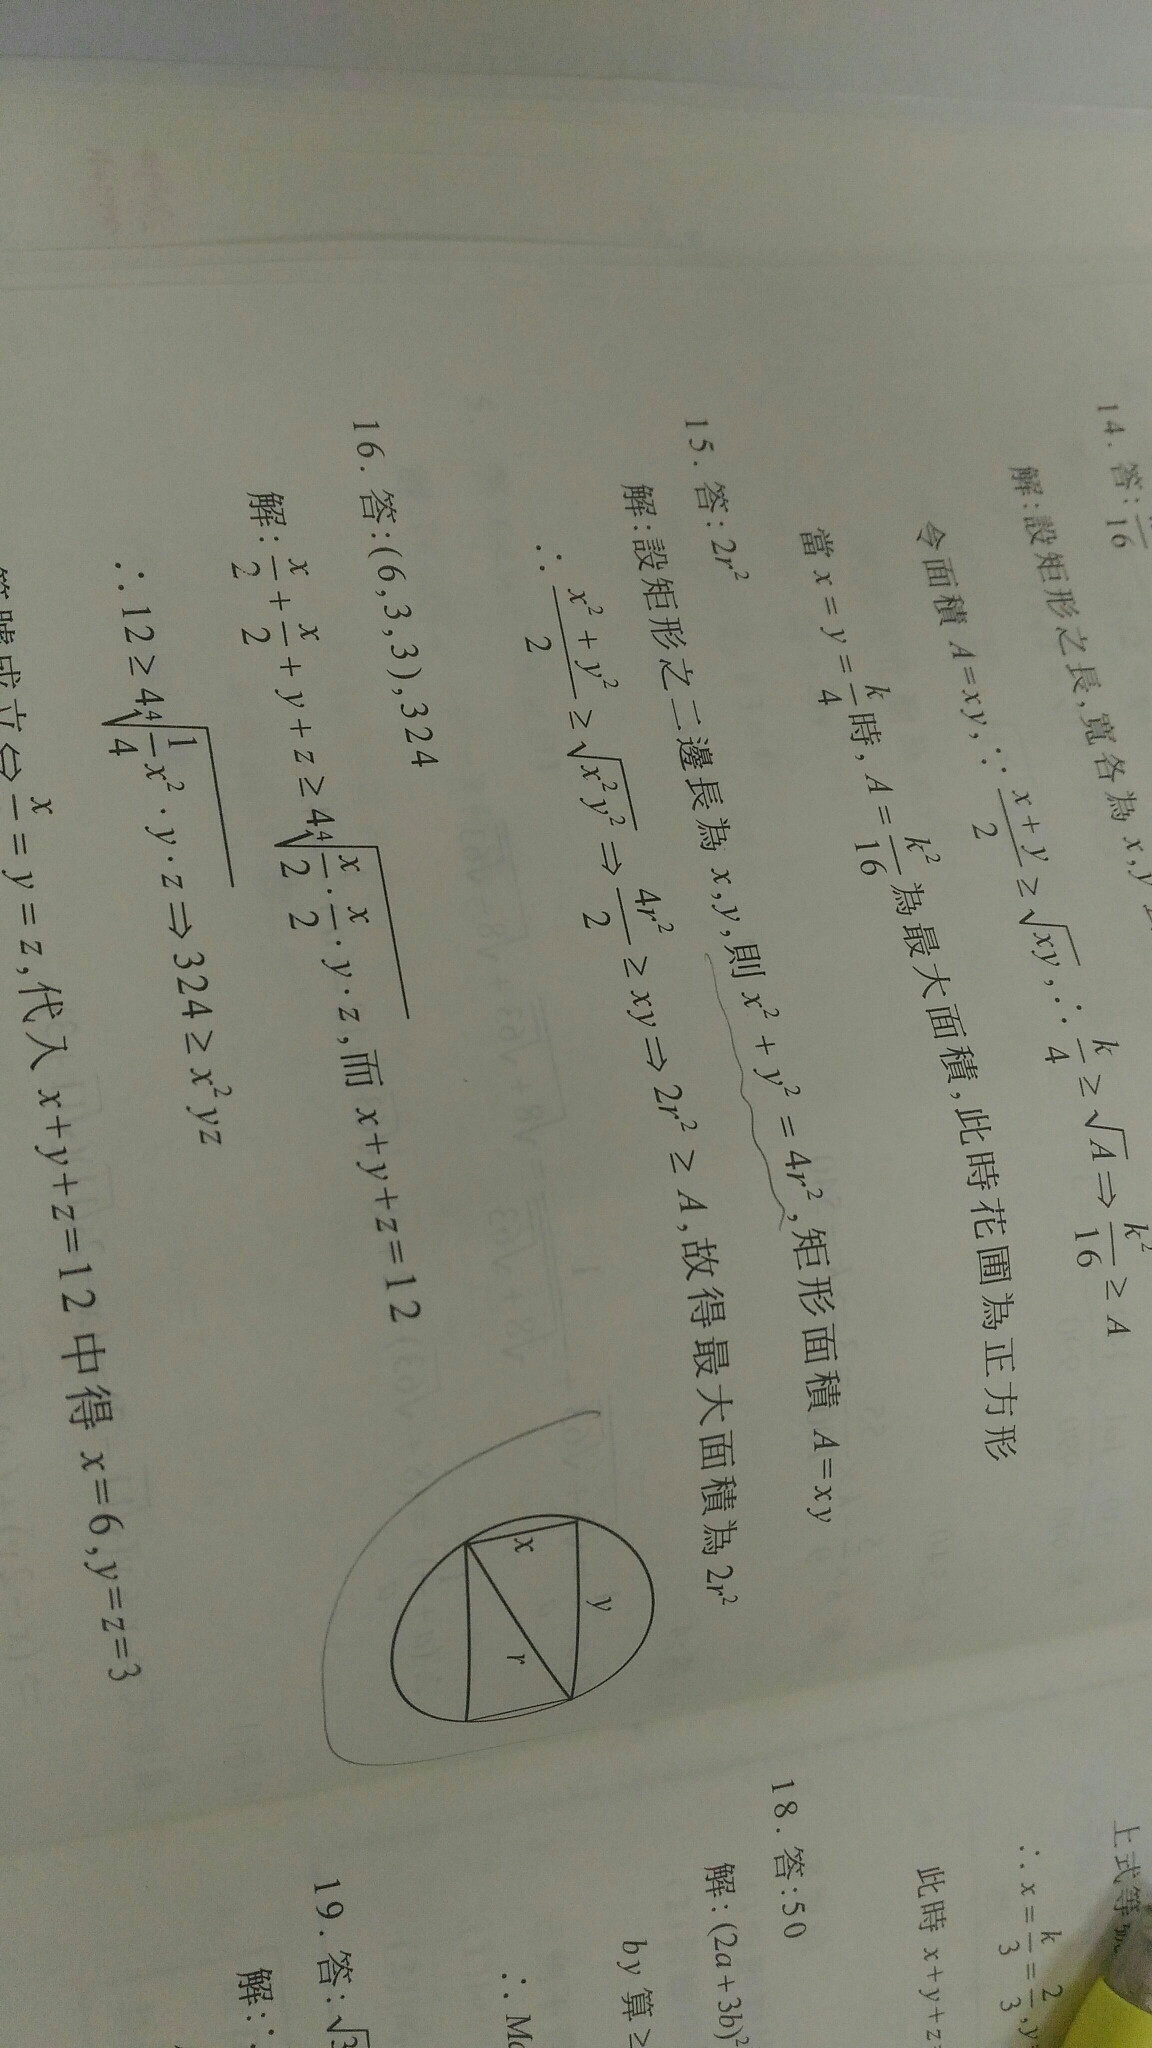 14. 答:
16
解:設矩形之長,寬各為 x,y
令面積 A=xy,∵ (x+y)/2 ≥ √(xy),∴ k/4 ≥ √A ⇒ k²/16 ≥ A
當 x = y = k/4 時, A = k²/16 為最大面積,此時花圃為正方形
15. 答: 2r²
解:設矩形之二邊長為 x,y,則 x² + y² = 4r²,矩形面積 A=xy
∴ (x² + y²)/2 ≥ √(x²y²) ⇒ 4r²/2 ≥ xy ⇒ 2r² ≥ A,故得最大面積為 2r²
x
y
r
16. 答:(6,3,3),324
解: x/2 + x/2 + y + z ≥ 4 ⁴√(x/2 · x/2 · y · z),而 x+y+z=12
∴ 12 ≥ 4 ⁴√(1/4 x² · y · z) ⇒ 324 ≥ x²yz
等號成立 ⇔ x/ = y = z,代入 x+y+z=12 中得 x=6,y=z=3
上式等
∴ x = k/3 = 2/3, y
此時 x+y+z=
18. 答:50
解: (2a+3b)²
by 算 ≥
∴
19. 答: √3
解: ∵